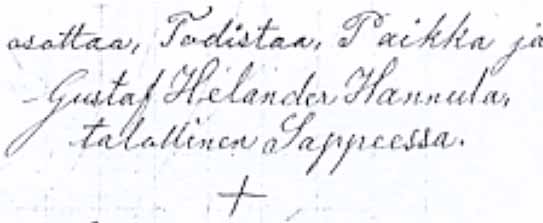 osottaa, Todistaa, Paikka ja
- Gustaf Helander Hannula,
talollinen Sappeessa.
+